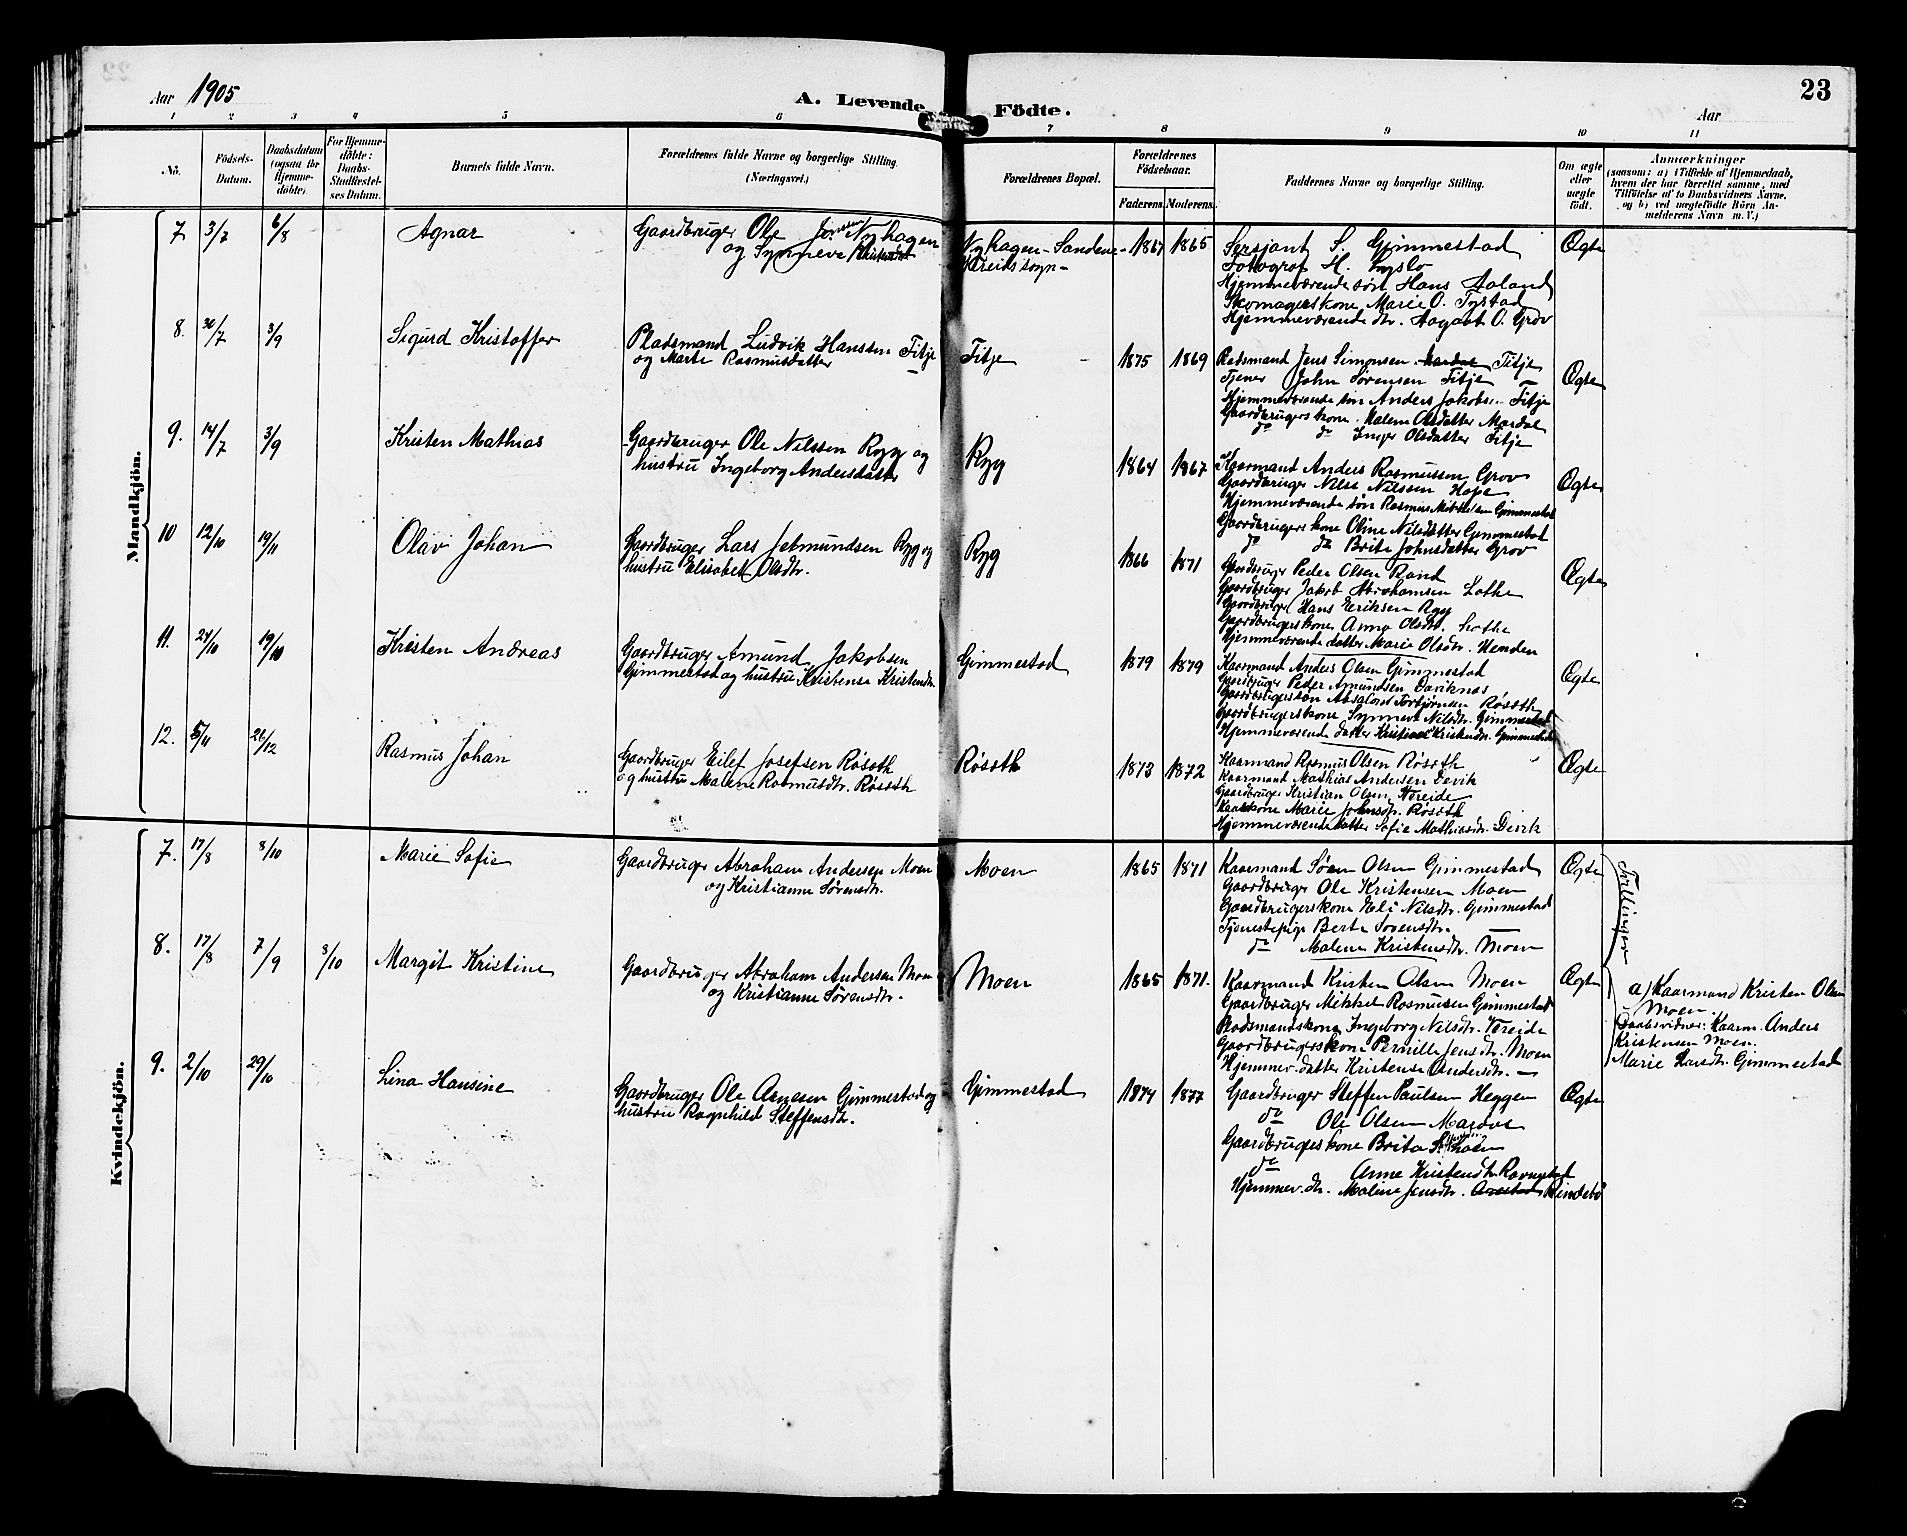 23
Aar 1905
A. Levende Födte.
Aar
1 2 3 4 5 6 7 8 9 10 11
No.
Födsels-Datum.
Daabsdatum (ogsaa for Hjemme-døbte)
For Hjemme-døbte: Daabs-Stadfæstel-ses Datum.
Barnets fulde Navn.
Forældrenes fulde Navne og borgerlige Stilling. (Næringsvei.)
Forældrenes Bopæl.
Forældrenes Födselsaar.
Faderens. Moderens.
Faddernes Navne og borgerlige Stilling.
Om ægte eller uægte födt.
Anmærkninger
(saasom: a) i Tilfælde af Hjemmedaab,
hvem der har forrettet samme, med
Tilföielse af to Daabsvidners Navne.
og b) ved uægtefödte Börn An-
melderens Navn m. V.)
Mandkjön.
7 3/7 6/8 Agnar
Gaardbruger Ole Nyhagen
og Synneve
Nyhagen - Sandene
Vereids sogn -
1867 1865
Sersjant S. Gimmestad
Fotograf H.
Hjemmeværende søn Hans Aaland
Skomagerskone Marie O. Tystad
Hjemmeværende dtr. Aagaat O. Grov
Ægte
8. 30/7 3/9 Sigurd Kristoffer
Pladsmand Ludvik Hanssen Fitje
og Marte Rasmusdatter
Fitje
1875 1869
Pladsmand Jens Simonsen Fitje
Tjener John Sørensen Fitje
Hjemmeværende søn Anders Jakobsen Fitje
Gaardbrugerskone Malene Olsdatter Mardal
do do Inger Olsdatter Fitje
Ægte
9. 14/7 3/9 Kristen Mathias
Gaardbruger Ole Nilssen Ryg og
hustru Ingeborg Andersdatter
Ryg
1864 1867
Kaarmand Anders Rasmussen Grov
Gaardbruger Nils Nilssen Hope
Hjemmeværende søn Rasmus Mikkelsen Gimmestad
Gaardbrugerskone Oline Nilsdatter Gimmestad
do do Brite Johnsdatter Grov
Ægte
10 12/10 19/11 Olav Johan
Gaardbruger Lars Jetmundsen Ryg og
hustru Elisabet Olsdtr.
Ryg
1866 1871
Gaardbruger Peder Olsen Rand
Gaardbruger Jakob Abrahamsen Lothe
Gaardbruger Hans Eriksen Ryg
Gaardbrugerskone Anna Olsdtr. Lothe
Hjemmeværende datter Marie Olsdtr. Henden
Ægte
11. 24/10 Kristen Andreas
Gaardbruger Amund Jakobsen
Gimmestad og hustru Kristense Kristendtr.
Gimmestad
1879 1879
Kaarmand Anders Olsen Gimmestad
Gaardbruger Peder Amundsen Daviknes
Gaardbrugersøn Absalon Torbjørnsen Røsoth
Gaardbrugerskone Synneve Nilsdtr. Gimmestad
Hjemmeværend datter Kristine Kristendtr. Gimmestad
Ægte
12. 5/11 26/12 Rasmus Johan
Gaardbruger Eilef Josefsen Røsoth
og hustru Malene Rasmusdtr. Røsoth
Røsoth
1873 1872
Kaarmand Rasmus Olsen Røsoth
Kaarmand Mathias Andersen Devik
Gaardbruger Kristian Olsen Vereide
Kaarkone Marie Johnsdtr. Røsoth
Hjemmeværende datter Sofie Mathiasdtr. Devik
Ægte
Kvindekjön.
7. 17/8 8/10 Marie Sofie
Gaardbruger Abraham Andersen Moen
og Kristianne Sørensdtr.
Moen
1865 1871
Kaarmand Søren Olsen Gimmestad
Gaardbruger Ole Kristensen Moen
Gaardbrugerskone Eli Nilsdtr. Gimmestad
Tjenestepige Berte Sørensdtr.
do Malene Kristensdtr. Moen
Ægte
Tvillinger
8. 17/8 7/9 8/10 Margit Kristine
Gaardbruger Abraham Andersen Moen
og Kristianne Sørensdtr.
Moen
1865 1871.
Kaarmand Kristen Olsen Moen
Gaardbruger Mikkel Rasmusen Gimmestad
Pladsmandskone Ingeborg Nilsdtr. Vereide
Gaardbrugerskone Pernille Jensdtr. Moen
Hjemmev. datter Kristense Andersdtr. —
Ægte
a) Kaarmand Kristen Olsen
Moen.
Daabsvidner: Kaarm. Anders
Kristensen Moen.
Marie Larsdtr. Gimmestad
9. 2/10 29/10 Lina Hansine
Gaardbruger Ole Arnesen Gimmestad og
hustru Ragnhild Steffensdtr.
Gimmestad
1874 1877
Gaardbruger Steffen Paulsen Heggen
do Ole Olsen Mardal
Gaardbrugerskone Brita
do Anne Kristendtr. Ravnestad
Hjemmev. dtr. Maline Jensdtr. Rindebø
Ægte